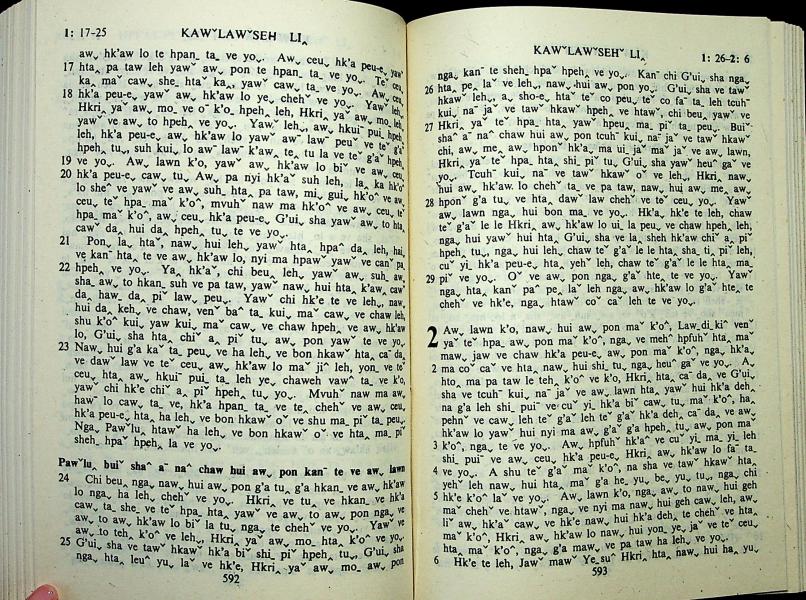 1: 17-25 KAWˇLAWˇSEH LI˰
aw˯ hk'aw lo te hpan_ ta_ ve yo˯. Aw˯ ceu˯ hk'a peu-e˯ yawˇ
17 hta˰ pa taw leh yawˇ aw˯ pon te hpan_ ta_ ve yo˯. Teˇ ceu˯
ka˰ maˇ caw˯ she_ htaˇ ka˯, yawˇ caw˯ ta_ ve yo˯. Aw˯ ceu˯
18 hk'a peu-e˯ yawˇ aw˯ hk'aw lo ye˯ chehˇ ve yo˯. Yawˇ leh˯
Hkri˰ yaˇ aw˯ mo_ ve oˇ k'o˰ hpeh˰ leh, Hkri˰ yaˇ aw˯ mo_ leh˯
yawˇ ve aw˯ to hpeh˰ ve yo˯. Yawˇ leh˯, aw˯ hkuiˇ pui˰ hpeh˰
leh, hk'a peu-e˯ aw˯ hk'aw lo yawˇ awˇ lawˇ peuˇ ve teˇ gˇaˇ
hpeh˰ tu˯, suh kui˯ lo awˇ lawˇ k'aw˰ te˰ tu la ve teˇ gˇaˇ hpeh˰
19 ve yo˯. Aw˯ lawn k'o, yawˇ aw˯ hk'aw lo biˇ ve aw˯ ceu˯
20 hk'a peu-e˯ caw˯ tu˯ Aw˯ pa nyi hk'aˇ suh leh, la˰ ka hk'oˇ
lo sheˇ ve yawˇ ve aw˯ suh_ hta˰ pa taw, mi˯ gui˯ hk'o^ ve aw˯
ceu˯ teˇ hpa˯ maˇ k'o^, mvuhˇ naw ma hk'o^ ve aw˯ ceu˯ teˇ
hpa_ maˇ k'o^, aw˯ ceu˯ hk'a peu-e˯ G'ui˯ sha yawˇ aw˯ to hta˰
cawˇ da˯ hui da˯ hpeh˰ tu˯ te ve yo˯.
21 Pon˯ la˯ htaˇ, naw˯ hui leh˯ yawˇ hta˰ hpa^ da˯ leh, hai˯
ve˯ kanˇ hta˰ te ve aw˯ hk'aw lo˯ nyi ma hpawˇ yawˇ ve canˇ pa˯
22 hpeh˰ ve yo˯. Ya˰ hk'aˇ, chi beu˯ leh˯ yawˇ aw˯ suh_ aw˯
sha_ aw˯ to hkan_suh ve pa taw, yawˇ naw˯ hui hta˰ k'aw˰ cawˇ
da˯ haw_ da˰ piˇ law˯ peu˯. Yawˇ chi hk'e te ve leh˯, naw˯
hui da˰ keh˯ ve chaw, venˇ ba^ ta_ kui˯ maˇ caw˯ ve chaw leh,
shu k'o^ kui˯ yaw kui˯ maˇ caw˯ ve chaw hpeh˰ ve aw˯ hk'aw
lo, G'ui˯ sha hta˰ chiˇ a˰ piˇ tu˯ aw˯ pon yawˇ te ve yo˯.
23 Naw˯ hui g'a kaˇ ta_ peu˯ ve ha leh˯ ve bon hkawˇ hta˰ ca¯ da˯
ve dawˇ law ve teˇ ceu˯ aw˯ hk'aw lo maˇ ji^ leh, yon˯ ve teˇ
ceu˯ hta˰ aw˯ hkuiˇ pui˰ ta_ leh ye˯ chaweh vawˇ ta_ ve k'o,
yawˇ chi hk'e chiˇ a˰ piˇ hpeh˰ tu˯ yo˯. Mvuhˇ naw ma aw˯
hawˇ lo caw˯ ta_ ve˯ hk'a hpan_ ta_ ve te˰ chehˇ ve aw˯ ceu˯
hk'a peu-e˯ hta˰ ha leh˯ ve bon hkawˇ oˇ ve shu ma_ piˇ ta_ peu˯.
Nga˯ Pawˇlu˰ htawˇ ha leh˯ ve bon hkawˇ oˇ ve hta˰ ma_ piˇ
sheh_ hpaˇ hpeh˰ la ve yo˯.
Pawˇlu_ buiˇ sha^ a¯ na^ chaw hui aw˯ pon kan¯ te ve aw˯ lawn
24 Chi beu˯ nga˯ naw˯ hui aw˯ pon g'a tu˰ g'a hkan_ ve aw˯ hk'aw
lo nga˯ ha leh˯ chehˇ ve yo˯. Hkri˰ ve tu˰ ve hkan_ ve hk'a
caw˯ ta_she_ ve teˇ hpa_ hta˰ yawˇ ve aw˯ to aw˯ pon nga˯ ve
aw˯ to aw˯ hk'aw lo biˇ la tu˯ nga˯ te chehˇ ve yo˯. Yawˇ ve
aw˯ to teh˰ k'o^ ve leh˯, Hkri˰ yaˇ aw˯ mo_ hta˰ k'o^ ve yo˯.
25 G'ui˯ sha ve tawˇ hkawˇ hk'a biˇ shi_ piˇ hpeh˰ tu˯, G'ui˯ sha
nga˯ hta˰ leu^ yu˯ la˯ ve hk'e, Hkri˰ yaˇ aw˯ mo_ aw˯ pon
592
KAWˇLAWˇSEHˇ LI˰ 1: 26-2: 6
nga˯ kan¯ te sheh_ hpaˇ hpeh˰ ve yo˯. Kan¯ chi G'ui˯ sha nga˯
26 hta˰ pe˰ laˇ ve leh˯, naw˯ hui aw˯ pon yo˯. G'ui˯ sha ve tawˇ
hkawˇ leh˯, a˯ sho-e˯ htaˇ teˇ co peu˯ teˇ co faˇ ta_ leh tcuhˇ
kui_ naˇ jaˇ ve tawˇ hkawˇ hpeh˰ ve htawˇ, chi beu˯ yawˇ ve
27 Hkri˰ yaˇ teˇ hpa_ hta˰ yawˇ hpeu_ ma_ piˇ ta_ peu˯. Buiˇ
sha^ a¯ na^ chaw hui aw˯ pon tcuhˇ kui_ naˇ jaˇ ve tawˇ hkawˇ
chi, aw˯ me˯ aw˯ hponˇ hk'a˰ ma ui˯ jaˇ maˇ jaˇ ve aw˯ lawn,
Hkri˰ yaˇ teˇ hpa_ hta˰ shi_ piˇ tu˯ G'ui˯ sha yawˇ heu^ gaˇ ve
yo˯. Tcuhˇ kui_ naˇ ve tawˇ hkawˇ oˇ ve leh˯, Hkri˰ naw˯
hui aw˯ hk'aw˯ lo chehˇ ta_ ve pa taw, naw˯ hui aw˯ me˯ aw˯
28 hponˇ g'a tu˯ ve hta˰ dawˇ law chehˇ ve teˇ ceu˯ yo˯. Yawˇ
aw˯ lawn nga˯ hui bon ma_ ve yo˯. Hk'a˰ hk'e te leh, chaw
teˇ g'aˇ le le Hkri˰ aw˯ hk'aw lo ui_ la peu˯ ve chaw hpeh˰ leh,
nga˯ hui yawˇ hui hta˰ G'ui˯ sha ve la˯ sheh hk'aw chiˇ a˰ piˇ
hpeh˰ tu˯, nga˯ hui leh˯ chaw teˇ g'aˇ le le hta˰ sha_ ti˰ piˇ leh,
cuˇ yi˯ hk'a peu-e˯ hta˰ yehˇ leh˯ chaw teˇ g'aˇ le le hta˰ ma_
29 piˇ ve yo˯. Oˇ ve aw˯ pon nga˯ g'aˇ hte_ te ve yo˯. Yawˇ
nga˯ hta˰ kanˇ pa^ pe˰ laˇ leh nga˯ aw˯ hk'aw lo g'aˇ hte_ te
chehˇ ve hk'e, nga˯ htawˇ coˇ caˇ leh te ve yo˯.
2 Aw˯ lawn k'o, naw˯ hui aw˯ pon maˇ k'o^, Law_di_ki^ venˇ
yaˇ teˇ hpa_ aw˯ pon maˇ k'o^, nga˯ ve meh^ hpfuhˇ hta˰ ma
maw˯ jaw ve chaw hk'a peu-e˯ aw˯ pon maˇ k'o^, nga˯ hk'a˰
2 ma coˇ caˇ ve hta˰ naw˯ hui shi_ tu˯ nga˯ heu^ gaˇ ve yo˯. A˰
hto˰ ma pa taw le teh˰ k'o^ ve k'o˯ Hkri˰ hta˰ ca¯ da˯ ve G'ui˯
sha ve tcuhˇ kui_ naˇ jaˇ ve aw˯ lawn hta˰ yawˇ hui hk'a deh˰
na g'a leh shi_ pui¯ ve cuˇ yi˯ hk'a biˇ caw˯ tu˯ maˇ k'o^, ha_
pehnˇ ve caw˯ leh teˇ g'aˇ leh teˇ g'aˇ hk'a deh˰ caˇ da˯ ve aw˯
hk'aw lo yawˇ hui nyi ma aw˯ g'aˇ g'a hpeh˰ tu˯ aw˯ pon maˇ
3 k'o^, nga˯ te ve yo˯. Aw˯ hpfuhˇ hk'a^ ve cuˇ yi˯ ma_ yi˯ leh
shi_ pui¯ ve aw˯ ceu˯ hk'a peu-e˯ Hkri˰ aw˯ hk'aw lo faˇ ta_
4 ve yo˯. A shu teˇ g'aˇ maˇ k'o^, na sha ve tawˇ hkawˇ hta˰
yehˇ leh naw˯ hui hta˰ maˇ g'a he˯ yu˯ be˯ yu˯ tu˯, nga˯ chi
5 hk'e k'o^ laˇ ve yo˯. Aw˯ lawn k'o, nga˯ aw˯ to naw˯ hui geh
maˇ chehˇ ve htawˇ, nga˯ ve nyi ma naw˯ hui geh caw˯ leh, aw˯
liˇ aw˯ hk'aˇ caw˯ ve hk'e naw˯ hui hk'a deh˰ te chehˇ ve hta˰
maˇ k'o^, Hkri˰ aw˯ hk'aw lo naw˯ hui yon˯ ye˯ jaˇ ve teˇ ceu˯
hta˰ maˇ k'o^, nga˯ g'a maw˯ ve pa taw ha leh˯ ve yo˯.
6 Hk'e te leh, Jawˇ mawˇ Ye_su^ Hkri˰ hta˰ naw˯ hui ha˰ yu˯
593